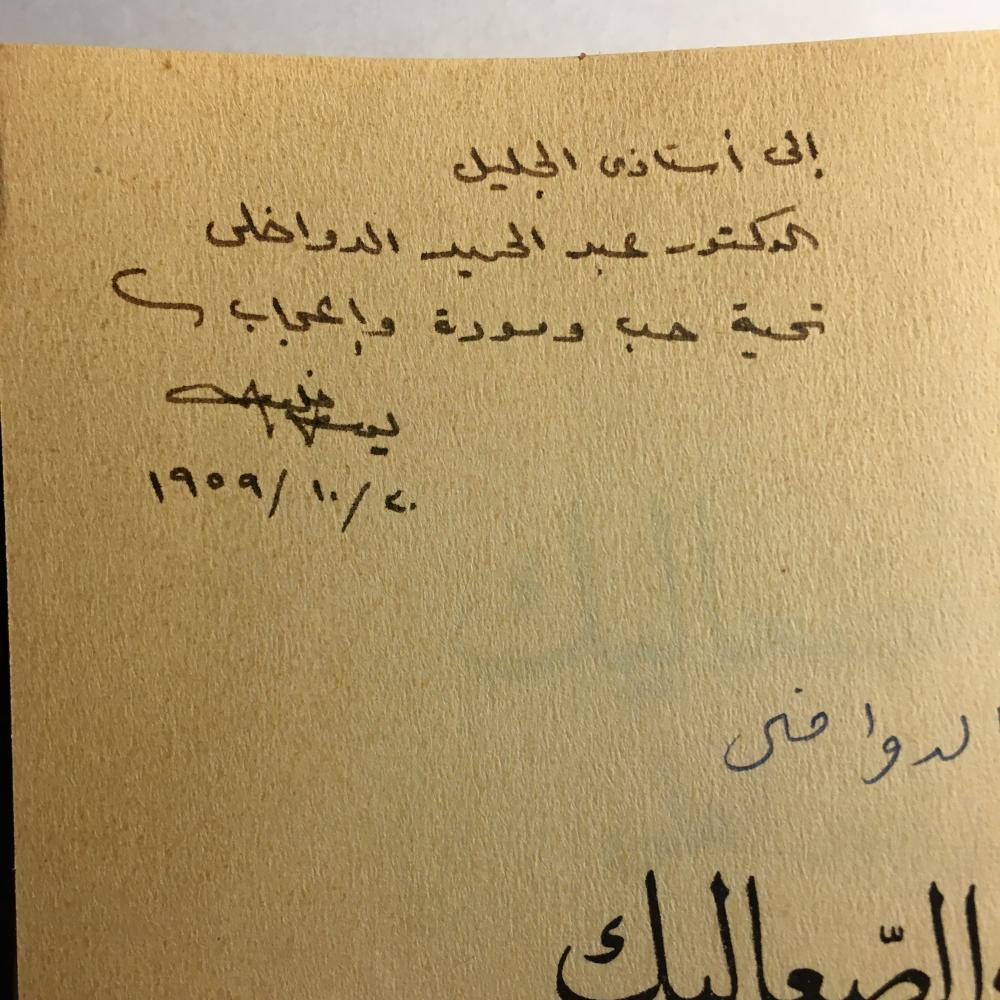 إلى أستاذى الجليل
الدكتور عبد الحميد الدواخلى
تحية حب ومودة وإعجاب
يوسف خليف
٢٠/١٠/١٩٥٩
الدواخلى
الصّعاليك